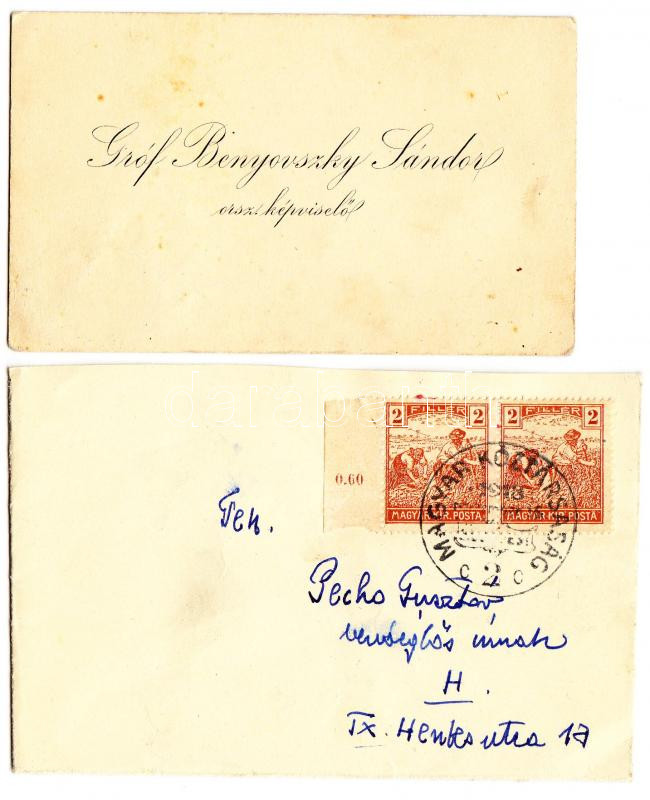 Gróf Benyovszky Sándor
orsz. képviselő
2 FILLÉR 2
2 FILLÉR 2
0.60
MAGYAR KIR. POSTA
MAGYAR KIR. POSTA
MAGYAR KÖZTÁRSASÁG
1918
2
Tek.
Pecho Gusztáv
vendéglős úrnak
H.
IX. Hentes utca 17